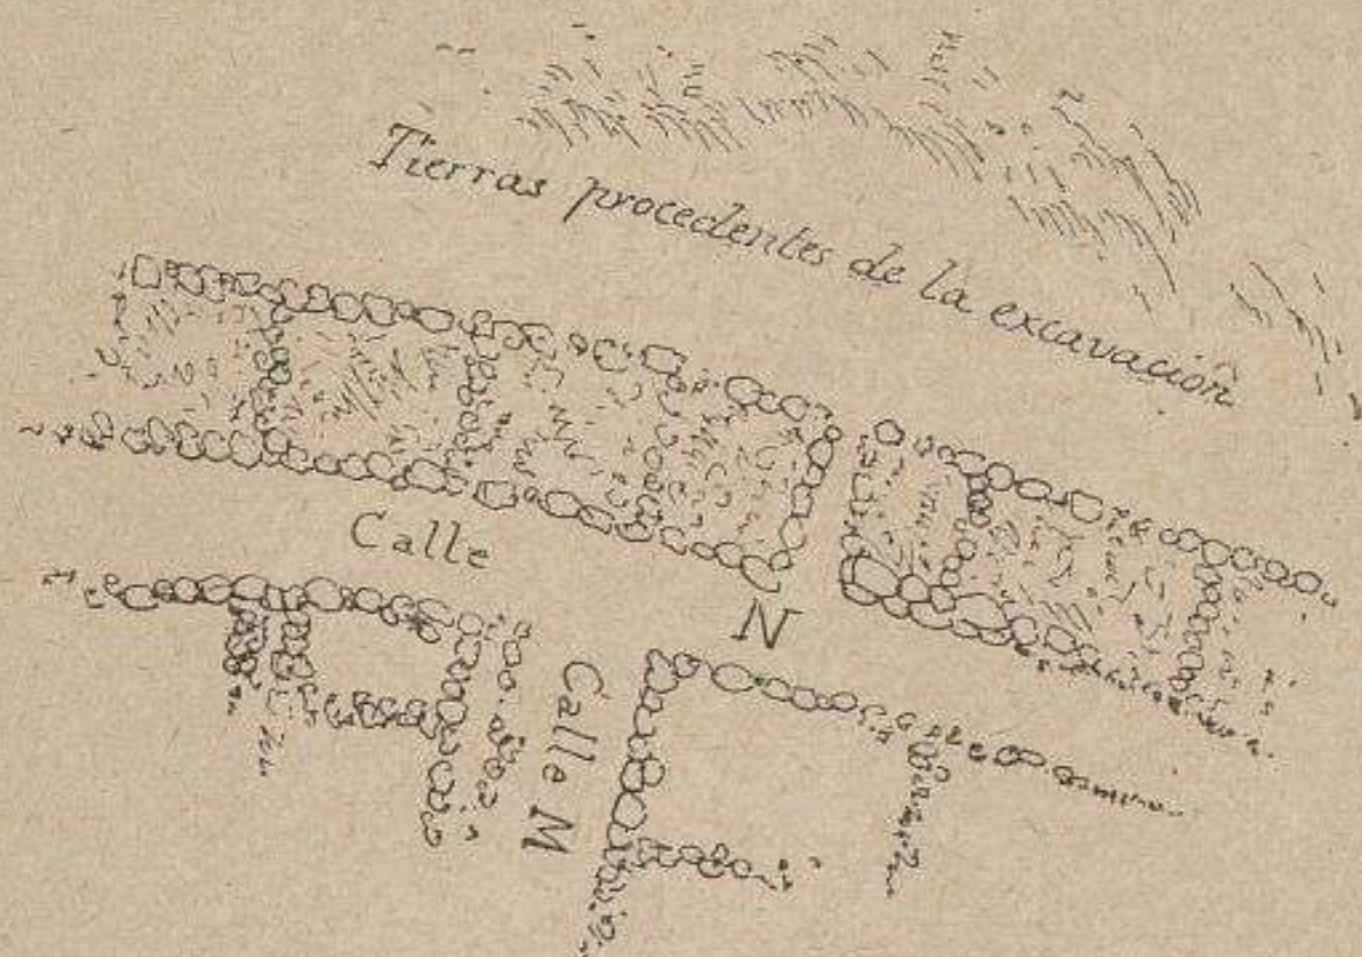 Tierras procedentes de la excavación
Calle
N
Calle M